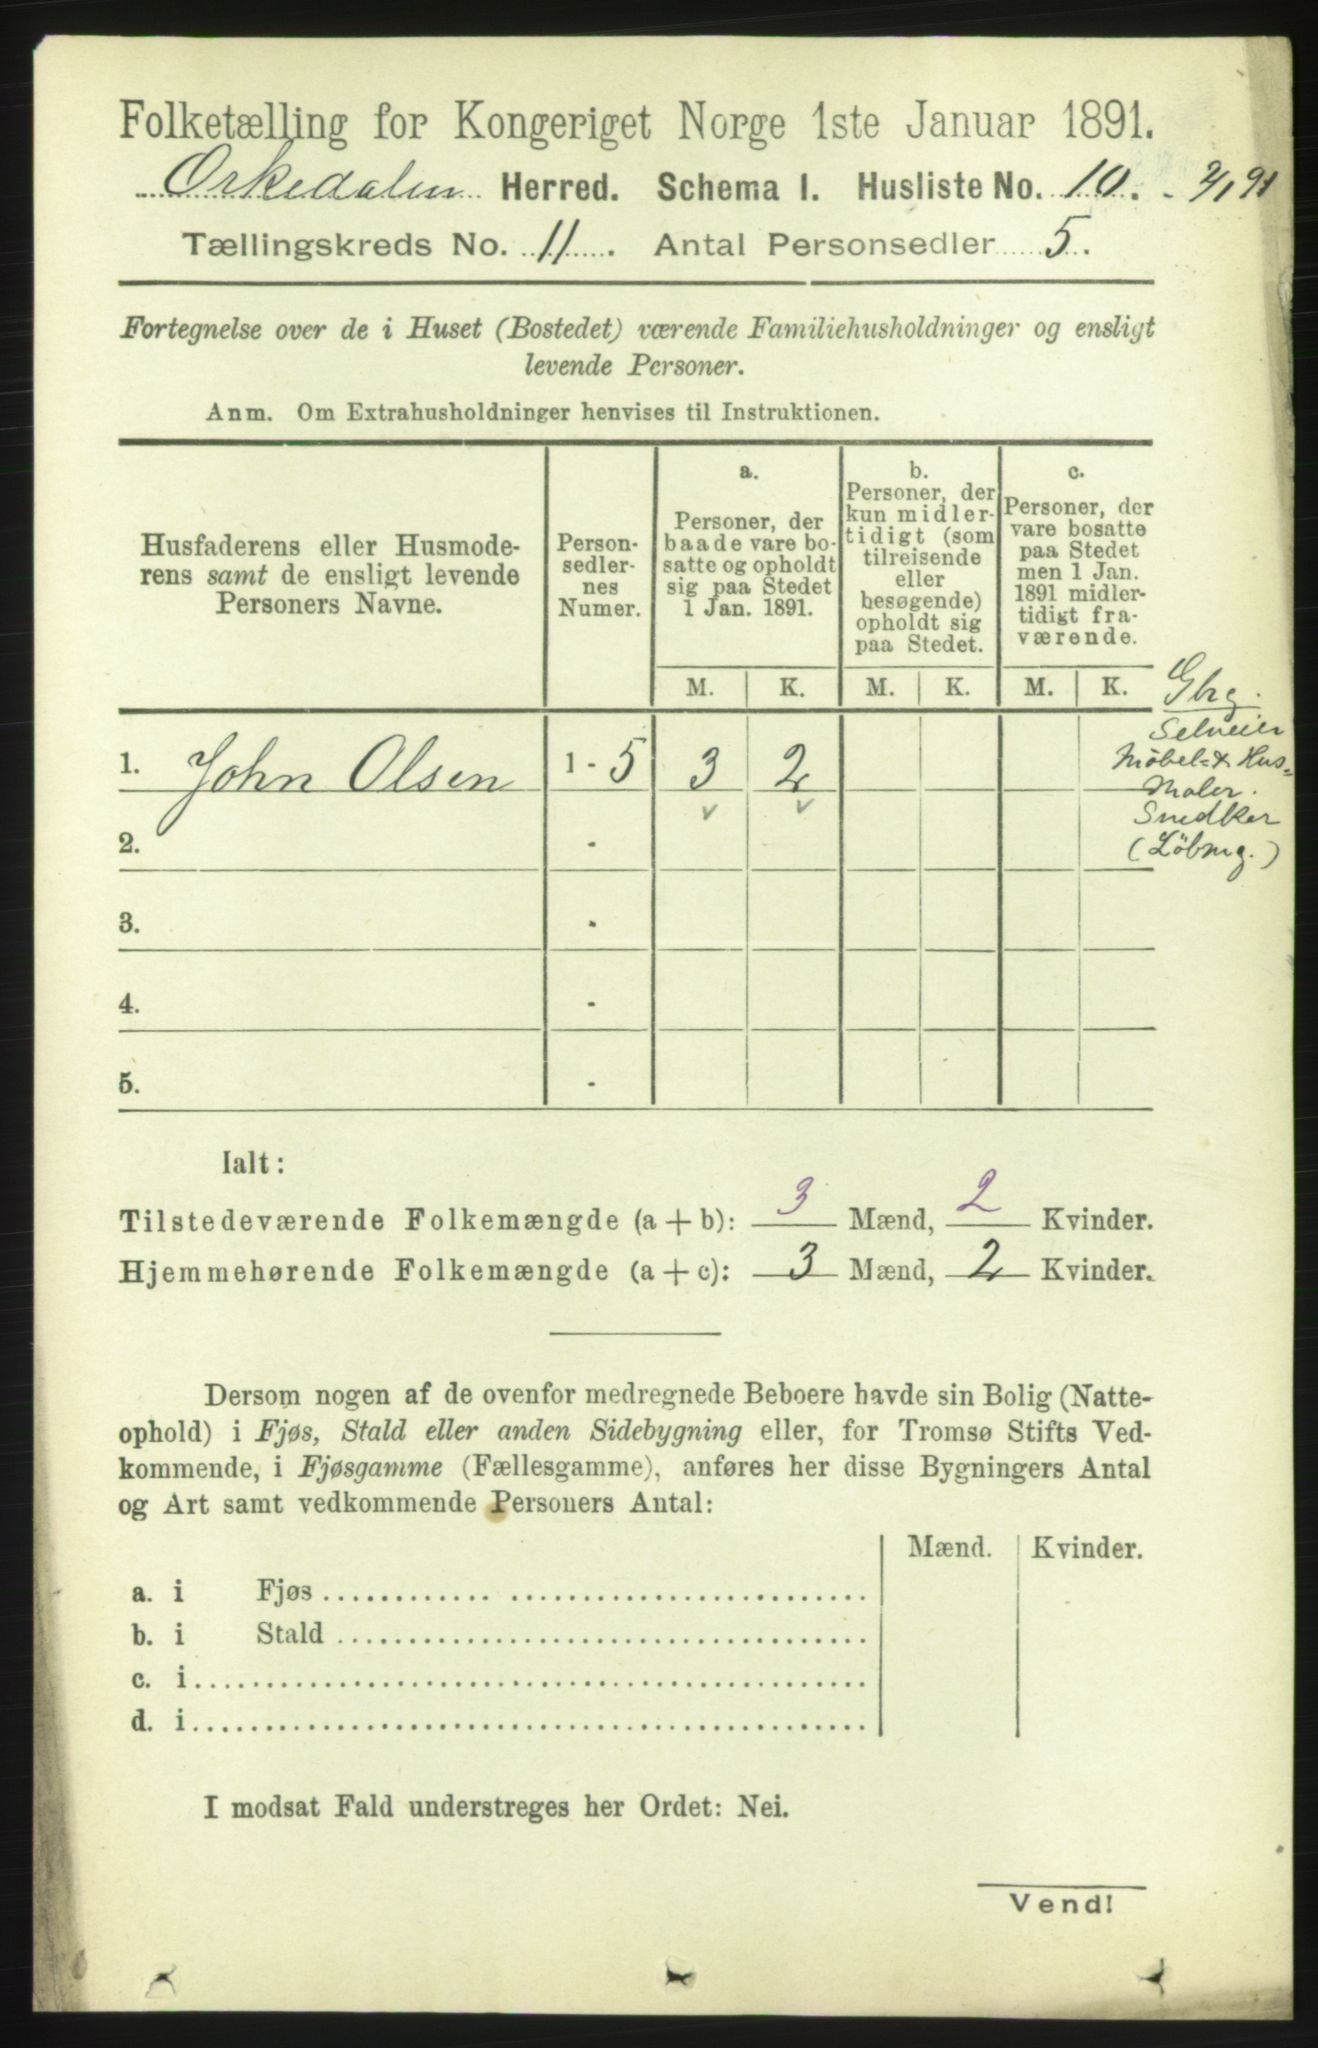 Folketælling for Kongeriget Norge 1ste Januar 1891.
Orkedalen Herred. Schema 1. Husliste No. 10. - 2/1 91
Tællingskreds No. 11. Antal Personsedler 5.
Fortegnelse over de i Huset (Bostedet) værende Familiehusholdninger og ensligt
levende Personer.
Anm. Om Extrahusholdninger henvises til Instruktionen.
Husfaderens eller Husmode-
rens samt de ensligt levende
Personers Navne.
Person-
sedler-
nes
Numer.
a.
Personer, der
baade vare bo-
satte og opholdt
sig paa Stedet
1 Jan. 1891.
b.
Personer, der
kun midler-
tidigt (som
tilreisende
eller
besøgende)
opholdt sig
paa Stedet.
c.
Personer, der
vare bosatte
paa Stedet
men 1 Jan.
1891 midler-
tidigt fra-
værende.
M. K. M. K. M. K.
Gbrg.
Selveier
Møbel- & Hus-
Maler.
Snedker
1. John Olsen 1 - 5 3 2
2. -
3. -
4. -
5. -
Ialt:
Tilstedeværende Folkemængde (a + b): 3 Mænd, 2 Kvinder.
Hjemmehørende Folkemængde (a + c): 3 Mænd, 2 Kvinder.
Dersom nogen af de ovenfor medregnede Beboere havde sin Bolig (Natte-
ophold) i Fjøs, Stald eller anden Sidebygning eller, for Tromsø Stifts Ved-
kommende, i Fjøsgamme (Fællesgamme), anføres her disse Bygningers Antal
og Art samt vedkommende Personers Antal:
Mænd. Kvinder.
a. i Fjøs
b. i Stald
c. i
d. i
I modsat Fald understreges her Ordet: Nei.
Vend!